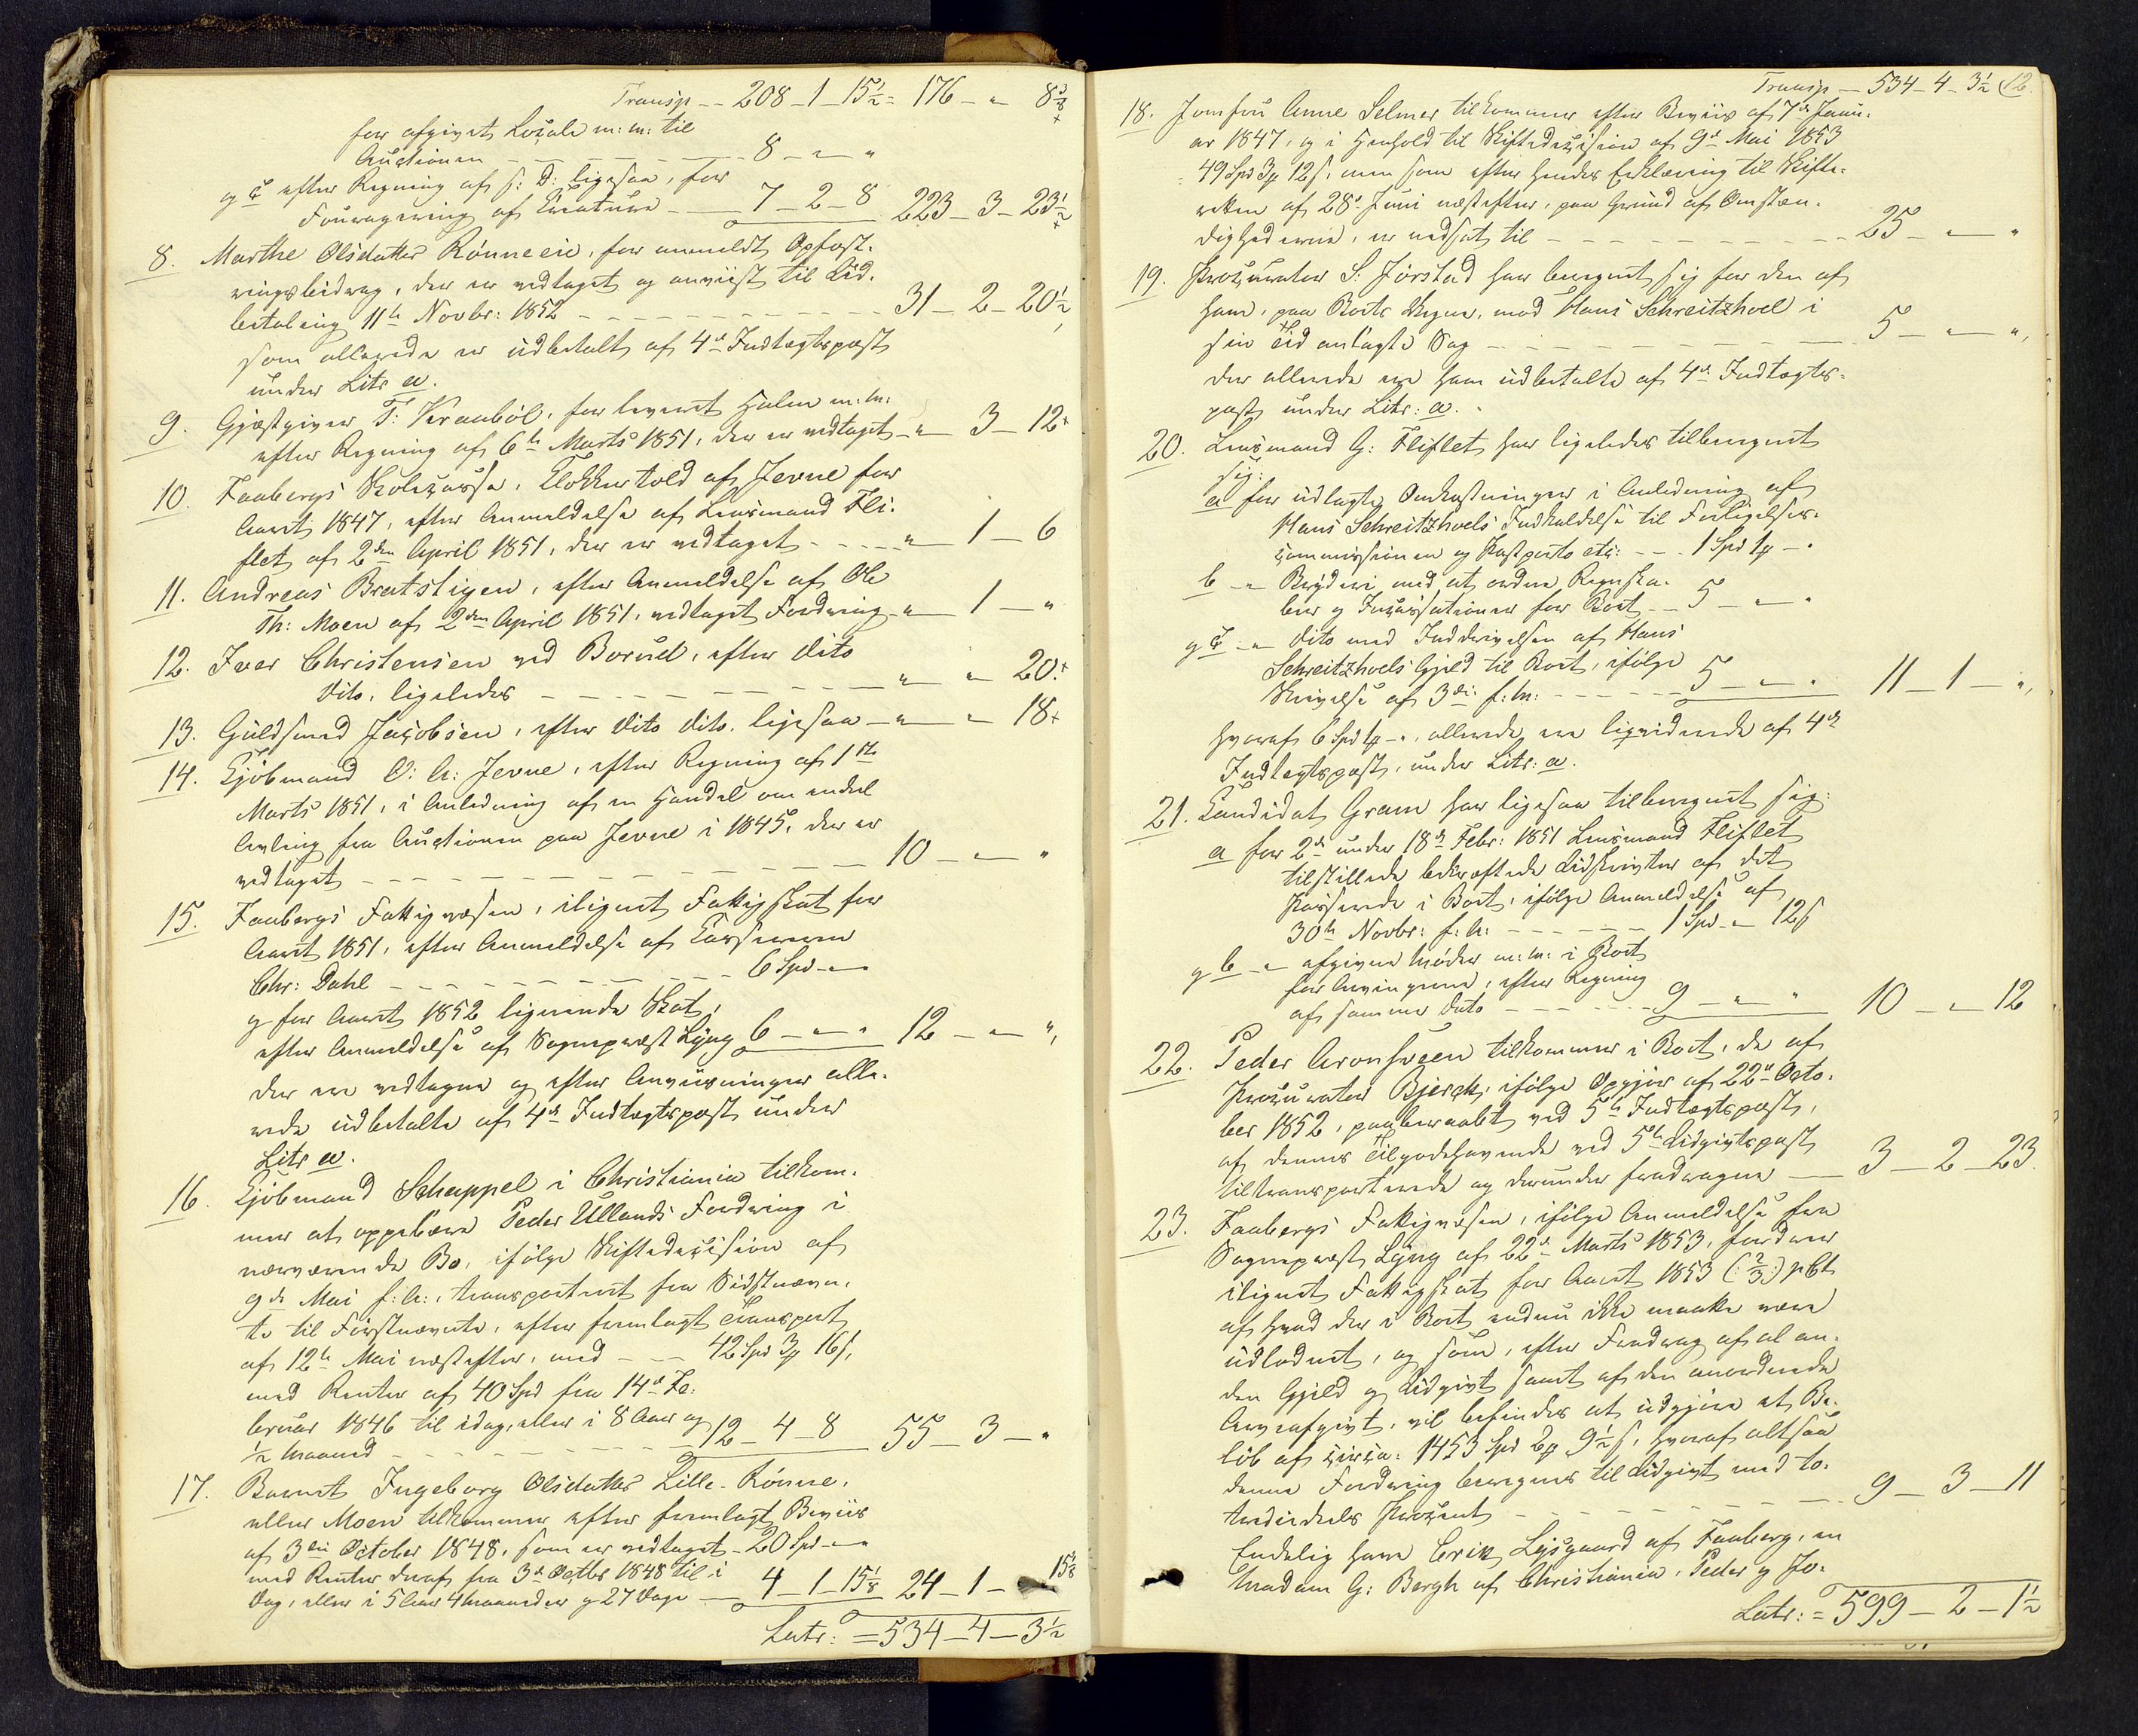 Transp -- 208-1-15½ = 176 - " 8⅜
for afgivet Locale m: m: til
Auctionen - - - - - 8 - " "
og c efter Regning af s: D: ligesaa, for
Fouragering af Creaturer - - 7-2-8 223-3-23½
8. Marthe Olsdatter Rønneeie, for anmeldt Opfost-
ringsbidrag, der er vedtaget og anviist til Ud-
betaling 11te Novbr: 1852 - - - - - 31-2-20½,
som allerede er udbetalt af 4de Indtægtspost
under Litr a.
9. Gjæstgiver T: Kranbøl, for leveret Halm m: m:
efter Regning af 6te Marts 1851, der er vedtaget - " 3-12
10. Faabergs Skolecasse, Klokkertold af Jevne for
Aaret 1847, efter Anmeldelse af Lensmand Fli-
flet af 2den April 1851, der er vedtaget - - - - " 1-6
11. Andreas Bratstigen, efter Anmeldelse af Ole
Th: Moen af 2den April 1851, vedtaget Fordring - " 1-"
12. Iver Christensen ved Borud, efter dito
dito, ligeledes - - - - - " " 20.
13. Guldsmed Jacobsen, efter dito dito, ligesaa - " - " 18
14. Kjøbmand O: A: Jevne, efter Regning af 1ste
Marts 1851, i Anledning af en Handel om endeel
Avling fra Auctionen paa Jevne i 1845, der er
vedtaget - - - - - 10 - " "
15. Faabergs Fattigvæsen, ilignet Fattigskat for
Aaret 1851, efter Anmeldelse af Kassereren
Chr: Dahl - - - - - 6 Spd - " -
og for Aaret 1852 lignende Skat,
efter Anmeldelse af Sognepræst Lyng 6 - " - " 12 - " ",
der ere vedtagne og efter Anviisninger alle-
rede udbetalte af 4de Indtægtspost under
Litr a.
16. Kjøbmand Schappel i Christiania tilkom-
mer at oppebære Peder Ullands Fordring i
nærværende Bo, ifølge Skiftedecision af
9de Mai f: A:, transporteret fra Sidstnævn-
te til Førstnævnte, efter fremlagt Transport
af 12te Mai næstefter, med - - 42 Spd 3 ₰ 16 s,
med Renter af 40 Spd fra 14de Fe-
bruar 1846 til idag, eller i 8 Aar og
½ Maaned - - - - - 12-4-8 55-3-"
17. Barnet Ingeborg Olsdatter Lille-Rønne,
eller Moen tilkommer efter fremlagt Beviis
af 3die October 1848, som er vedtaget - 20 Spd - " -
med Renter deraf fra 3de Octbr 1848 til i
Dag, eller i 5 Aar 4 Maaneder og 27 Dage - 4-1-15⅛ 24-1- 15⅛
Latr: = 534-4-3½
Transp - 534-4-3½ 12
18. Jomfru Anne Selmer tilkommer efter Beviis af 7de Janu-
ar 1847, og i Henhold til Skiftedecision af 9de Mai 1853
49 Spd 3 ₰ 12 s, men som efter hendes Erklæring til Skifte-
retten af 28de Juni næstefter, paa Grund af Omstæn-
dighederne, er nedsat til - - - - - 25 - " - "
19. Procurator S. Jørstad har beregnet sig for den af
ham, paa Boets Vegne, mod Hans Schreitzhoel i
sin Tid anlagte Sag - - - - - 5 - " - ",
der allerede ere ham udbetalte af 4de Indtægts-
post under Litr: a.
20. Lensmand G: Fliflet har ligeledes tilberegnet
sig:
a for udlagte Omkostninger i Anledning af
Hans Schreitzhoels Indkaldelse til Forligelses-
commissionen og Postporto etc: - - 1 Spd 1 ₰ - "
b - " Bryderi med at ordne Regnska-
ber og Incassationer for Boet - - 5 - " - "
og c - " dito med Inddrivelsen af Hans
Schreitzhoels Gjeld til Boet, ifølge
Skrivelse af 3die f: M: - - - - - 5 - " - " 11-1-",
hvoraf 6 Spd 1 ₰ - ", allerede ere liqviderede af 4de
Indtægtspost, under Litr: a.
21. Candidat Gram har ligesaa tilberegnet sig:
a for 2de under 18de Febr: 1851 Lensmand Fliflet
tilstillede bekræftede Udskrivter af det
Passerede i Boet, ifølge Anmeldelse af
30te Novbr: f: A: - - - - - 1 Spd - " 12 s
og b - " afgivne Møder m: m: i Boet
for Arvingerne, efter Regning
af samme Dato - - - - - 9 - " - " 10 - " 12
22. Peder Aronsveen tilkommer i Boet, de af
Procurator Bjerck, ifølge Opgjør af 22de Octo-
ber 1852, paaberaabt ved 5te Indtægtspost,
af dennes Tilgodehavende ved 5te Udgivtspost
tiltransporterede og derunder fradragne - - 3-2-23.
23. Faabergs Fattigvæsen, ifølge Anmeldelse fra
Sognepræst Lyng af 22de Marts 1853, fordrer
ilignet Fattigskat for Aaret 1853 (: ⅔ :) pCt
af hvad der i Boet endnu ikke maatte være
udloddet, og som, efter Fradrag af al an-
den Gjeld og Udgivt samt af den anordnede
Arveafgivt, vil befindes at udgjøre et Be-
løb af circa: 1453 Spd 2 ₰ 9½ s, hvoraf altsaa
denne Fordring beregnes til Udgivt med to-
trediedeels Procent - - - - - 9-3-11
Endelig have Erik Lysgaard af Faaberg, en
Madam G: Bergh af Christiania, Peder og Jo-
Latr: = 599-2-1½